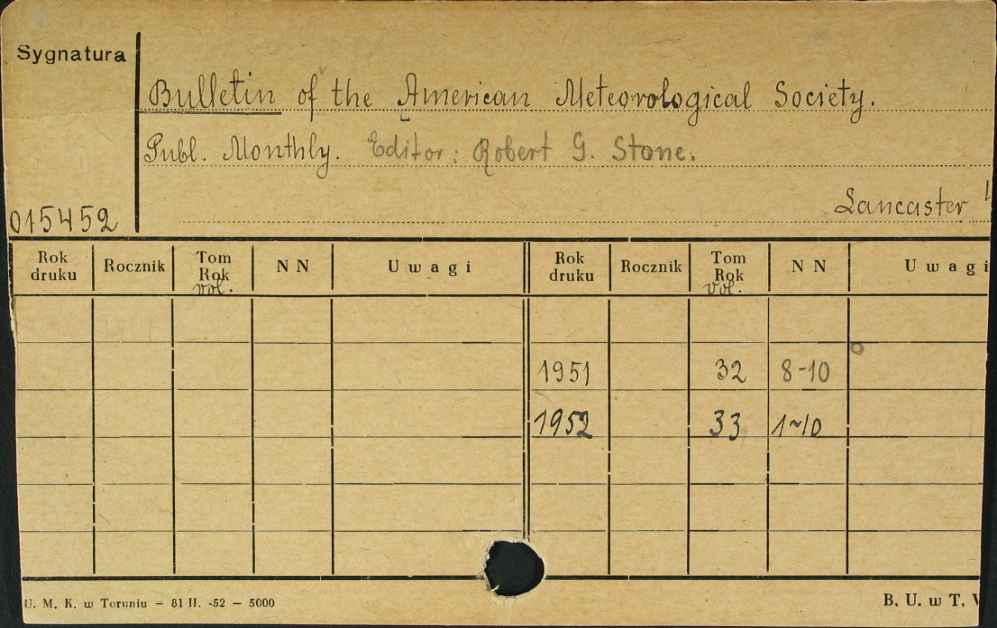 Sygnatura
Bulletin of the American Meteorological Society.
Publ. Monthly. Editor: Robert G. Stone.
Lancaster
015452
Rok druku Rocznik Tom Rok vol. N N Uwagi Rok druku Rocznik Tom Rok vol. N N Uwagi
1951 32 8-10
1952 33 1-10
U. M. K. w Toruniu - 81 II. -52 - 5000 B. U. w T.